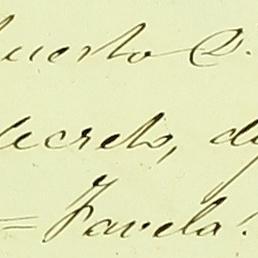 uerto D.
decreto, d
= Favela.